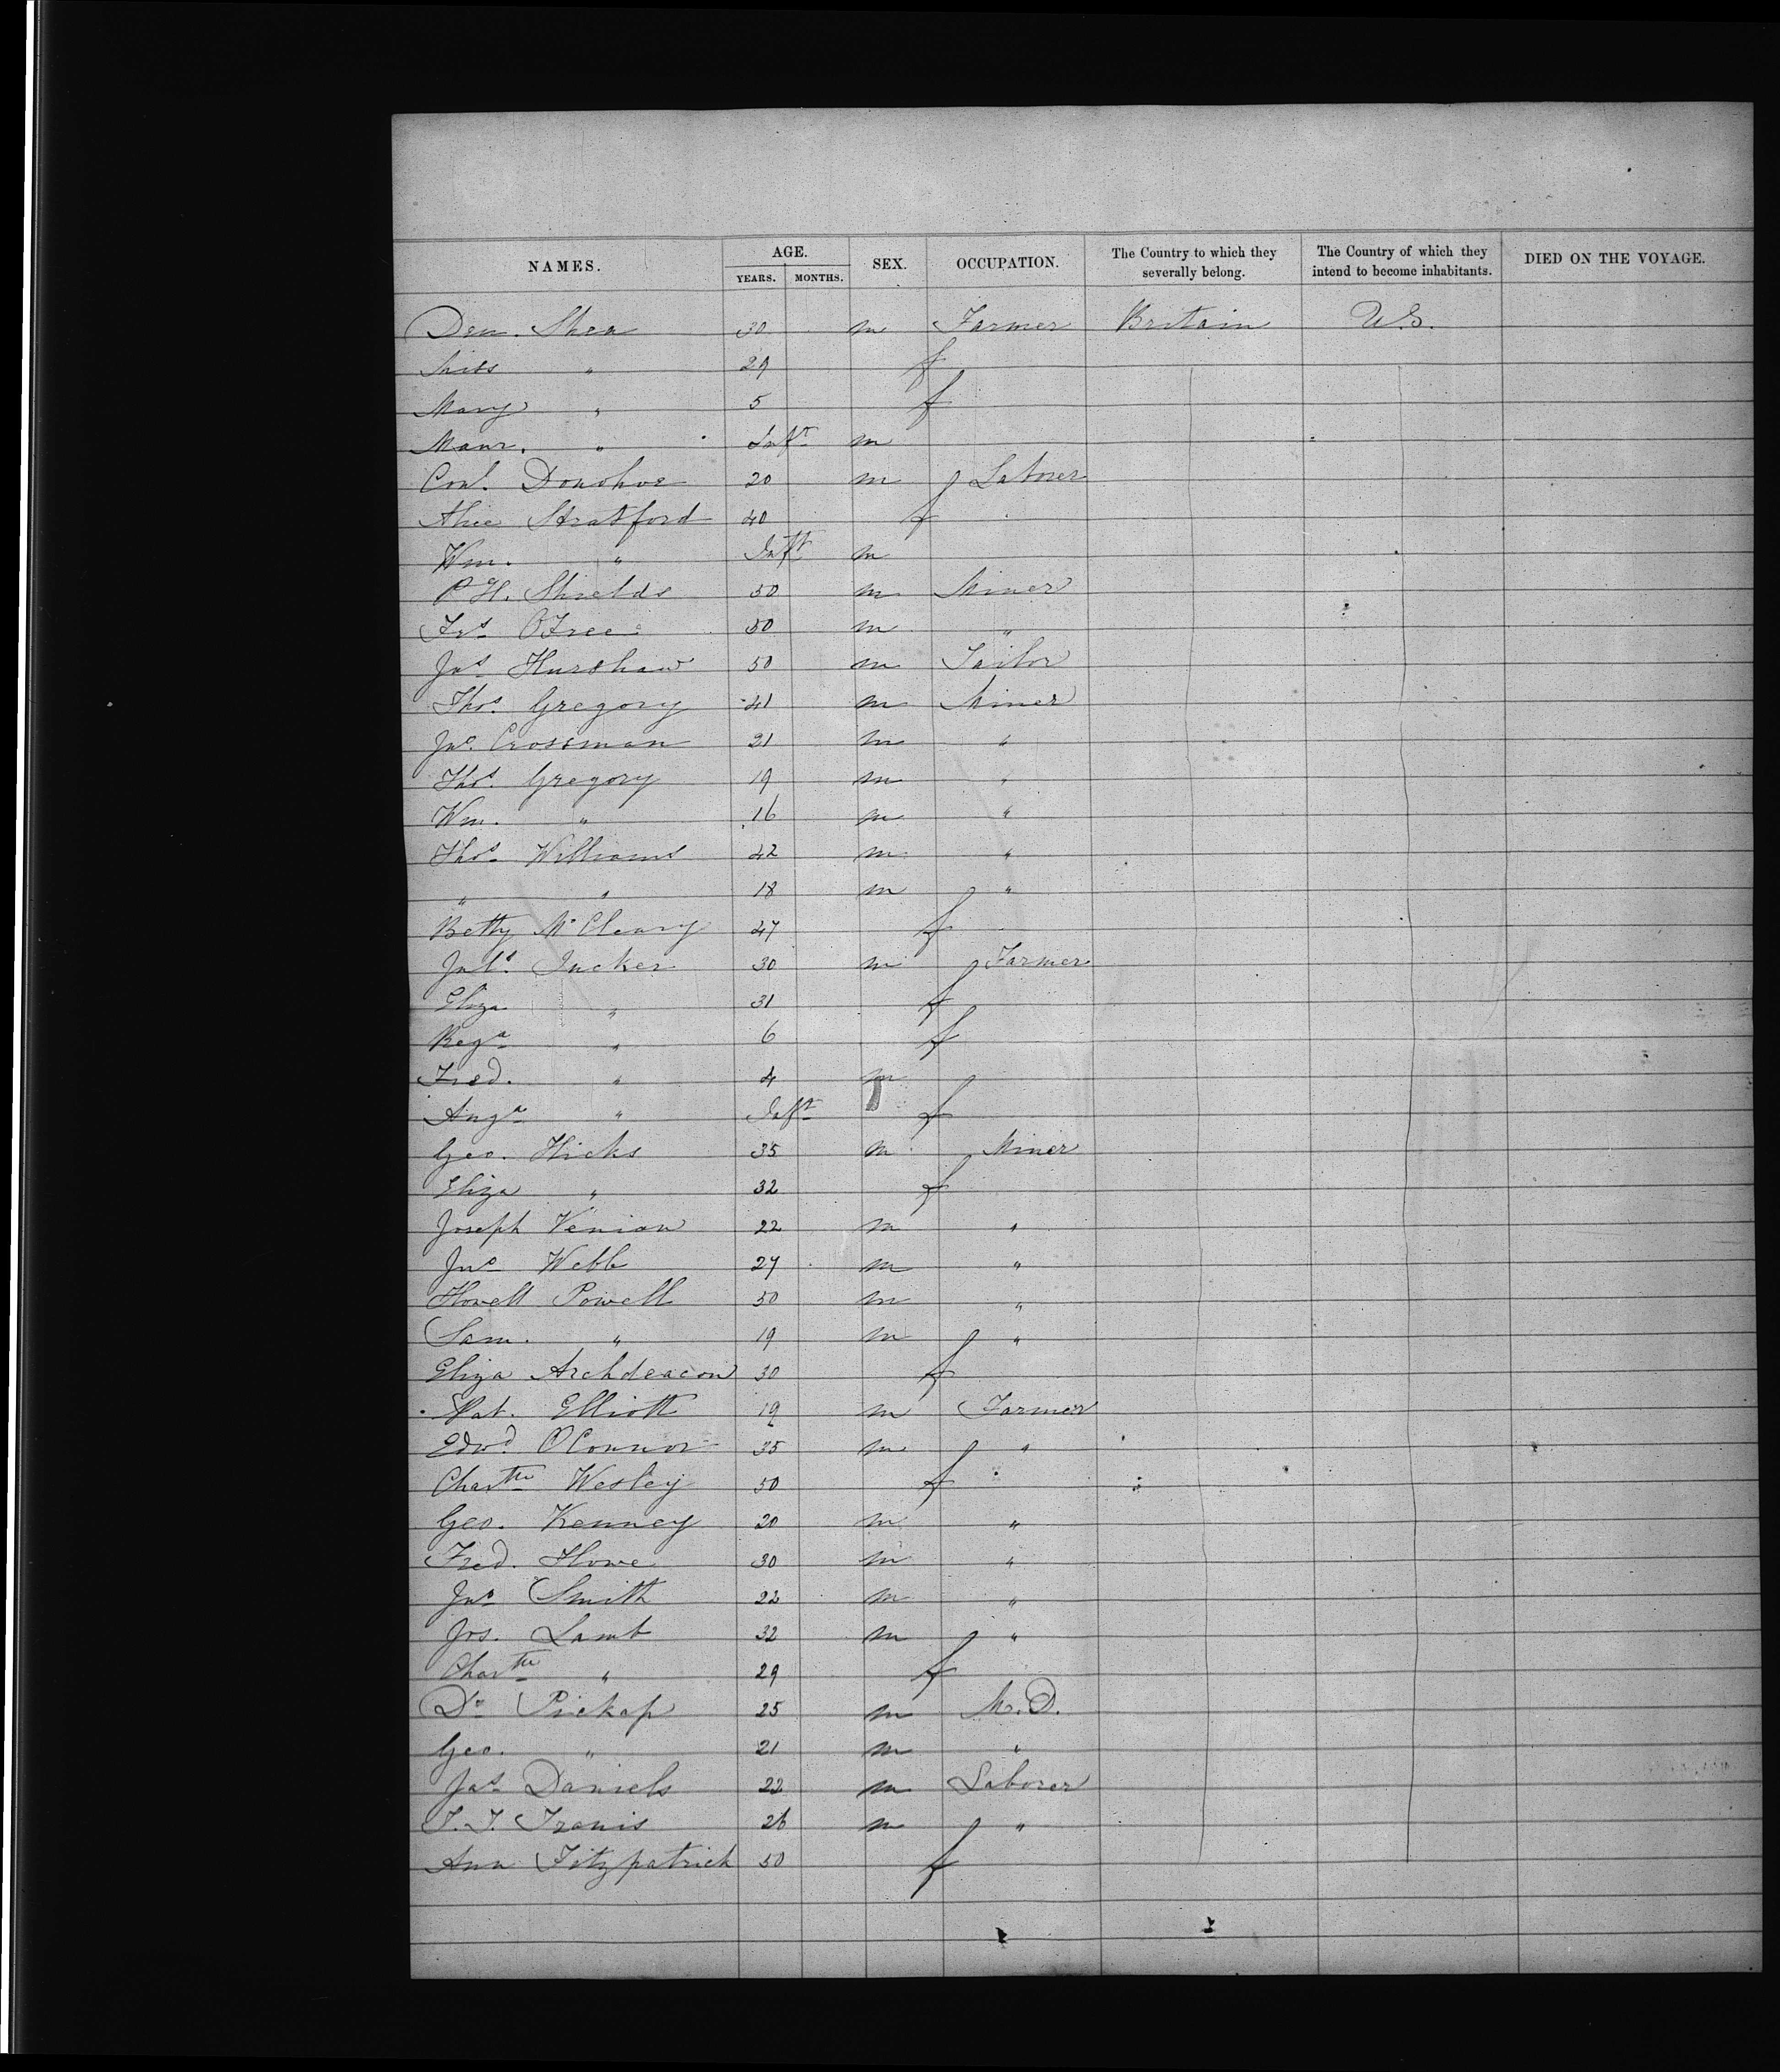 NAMES. AGE. SEX. OCCUPATION. The Country to which they severally belong. The Country of which they intend to become inhabitants. DIED ON THE VOYAGE.
YEARS. MONTHS.
Den. Shea 30 m Farmer Britain U.S.
" 29 f
Mary " 5 f
Maur. " Inft m
Conl. Donohoe 20 m Laborer
Alice Stratford 40 f
Wm. " Inft m
P H. Shields 50 m Miner
50 m "
Jas Hurshaw 50 m Tailor
Thos. Gregory 41 m Miner
Jno. Crossman 21 m "
Thos. Gregory 19 m "
Wm. " 16 m "
Thos. Williams 42 m "
" " 18 m "
Betty McCleary 47 f
30 m Farmer
Eliza " 31 f
Rega " 6 f
Fred. " 4 m
Auga " Inft f
Geo. Hicks 35 m Miner
Eliza " 32 f
Joseph Venian 22 m "
Jno Webb 27 m "
Howell Powell 50 m "
Sam. " 19 m "
Eliza Archdeacon 30 f
Pat. Elliott 19 m Farmer
Edwd O'Connor 35 m "
Chartte Wesley 50 f
Geo. Kenney 20 m "
Fred. Howe 30 m "
Jno Smith 22 m "
Jos. Lamb 32 m "
Chartte " 29 f
Dr Pickap 25 m M.D.
Geo. " 21 m "
Jas Daniels 22 m Laborer
T. J. Travis 26 m "
Ann Fitzpatrick 50 f